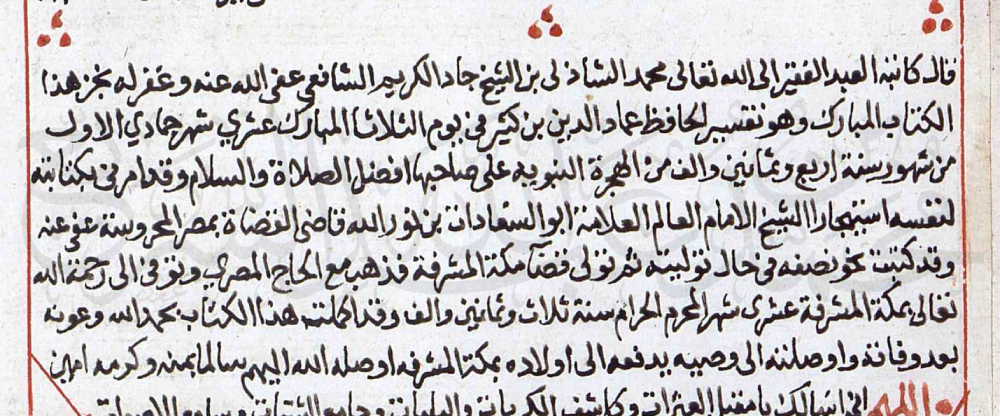 قال كاتبه العبد الفقير الى الله تعالى محمد الشاذلى بن الشيخ جاد الكريم الشافعى عفى الله عنه وغفر له نجز هذا
الكتاب المبارك وهو تفسير الحافظ عماد الدين بن كثير فى يوم الثلاثا المبارك عشرى شهر جمادي الاول
من شهور سنة اربع وثمانين والف من الهجرة النبويه على صاحبها افضل الصلاة والسلام وقد امرنى بكتابته
لنفسه استيجارا الشيخ الامام العالم العلامة ابو السعادات بن نور الله قاضى القضاة بمصر المحروسة عفى عنه
وقد كتبت نحو نصفه فى حال توليته ثم تولى قضآ مكة المشرفة فذهب مع الحاج المصري وتوفى الى رحمة الله
تعالى بمكة المشرفة عشرى شهر المحرم الحرام سنة ثلاث وثمانين والف وقد اكملت هذا الكتاب بحمد الله وعونه
بعد وفاته واوصلته الى وصيه يدفعه الى اولاده بمكة المشرفه اوصله الله اليهم سالما بمنه وكرمه امين
اللهم انى اسالك يا مقيل العثرات وكاشف الكربات والبليات وجامع الشتات